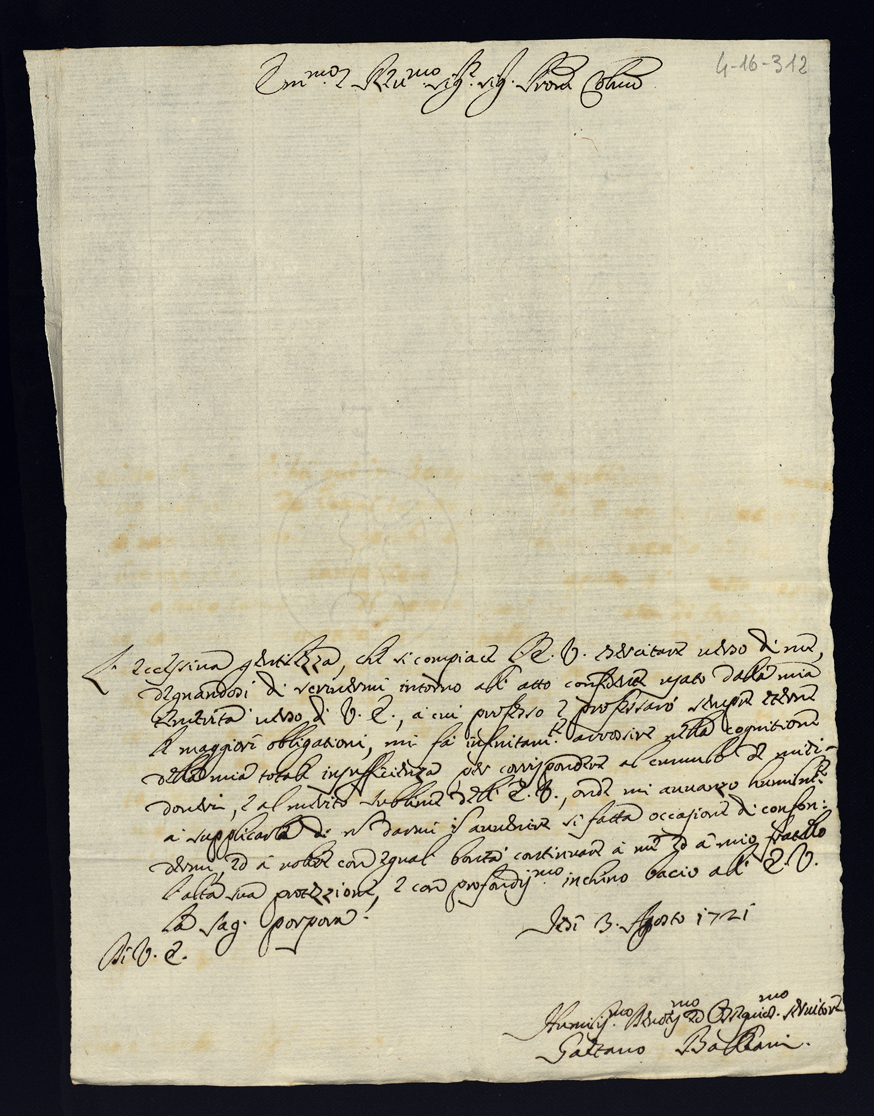 4-16-312
Em.mo e R.mo Sig.r Sig.r Pron Colmo
L' eccessiva gentilezza, che si compiace l'E. V. esercitare verso di me,
degnandosi di scrivermi intorno all' atto confidente usato dalla mia
servitù verso di V. E., a cui professo e professarò sempre eterne
le maggiori obligationi, mi fà infinitam.te arrossire nella cognitione
della mia totale insufficienza per corrispondere al cumulo de miei
doveri, e al merito sublime dell' E. V., onde mi avanzo humilm.te
a supplicarla di n darmi in avvenire si fatta occasione di confon:
dermi, ed à voler con egual bontà continuare à me ed à mio fratello
l'alta sua protezzione, e con profondiss.mo inchino bacio all' E. V.
la sag. porpora.
Di V. E.
Jesi 3. Agosto 1721
Humiliss.mo Devotiss.mo ed Obseguios.mo servitore
Gaetano